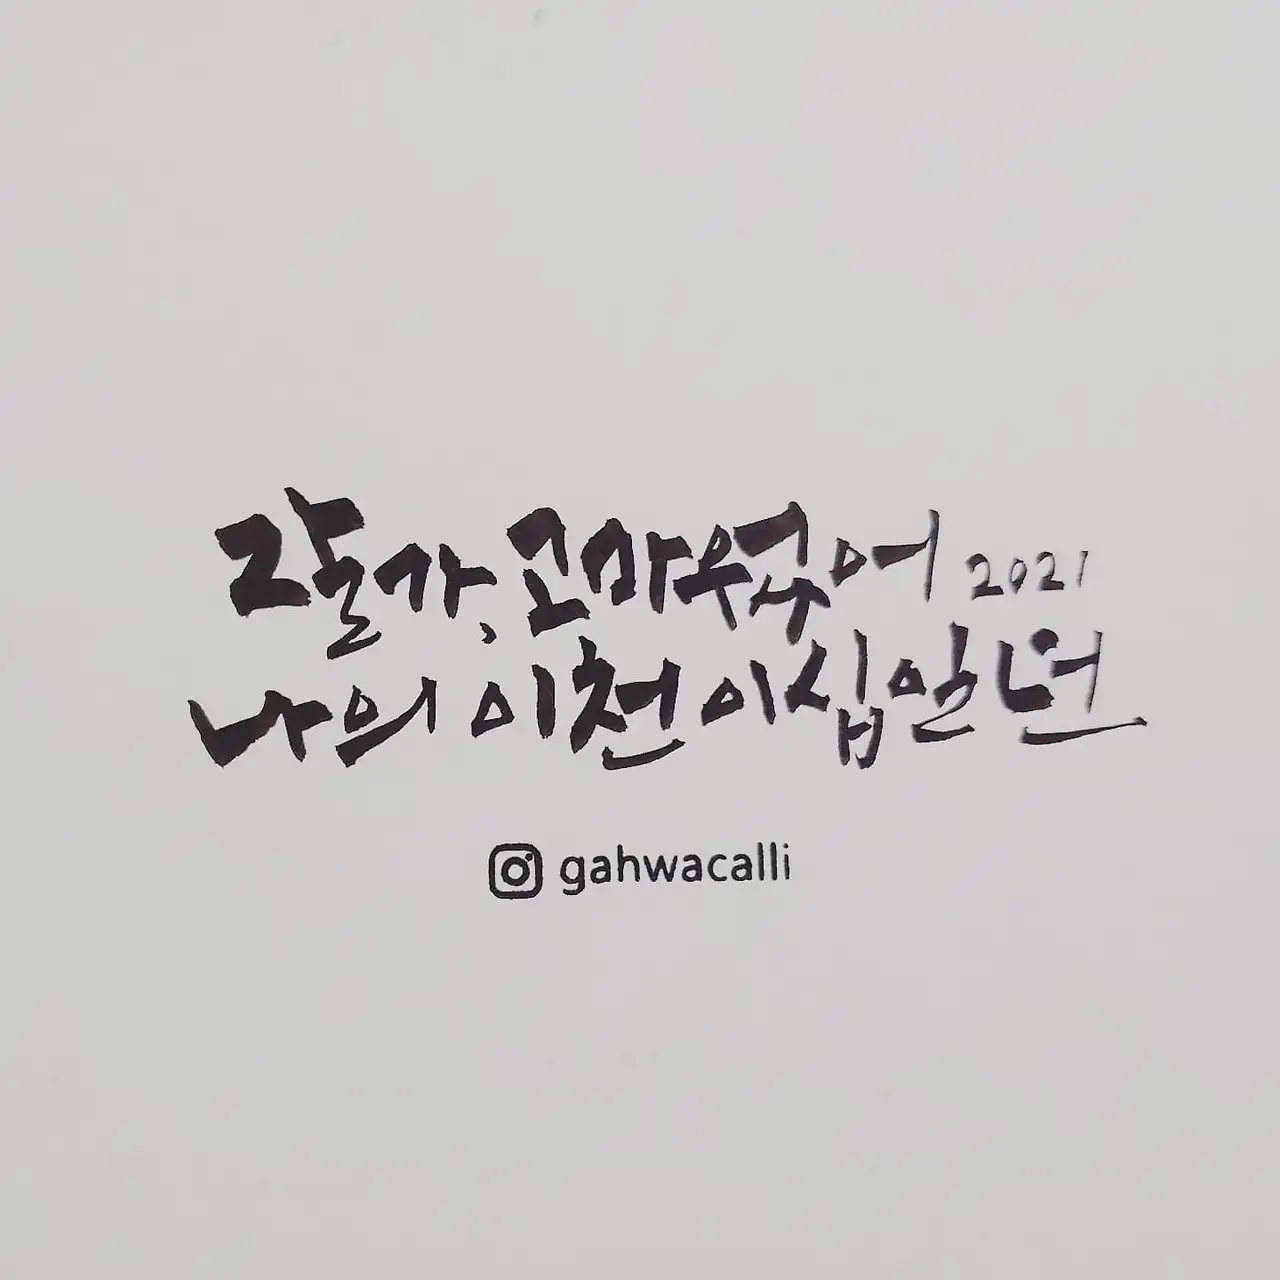 잘가, 고마웠어 2021
나의 이천이십일년
gahwacalli